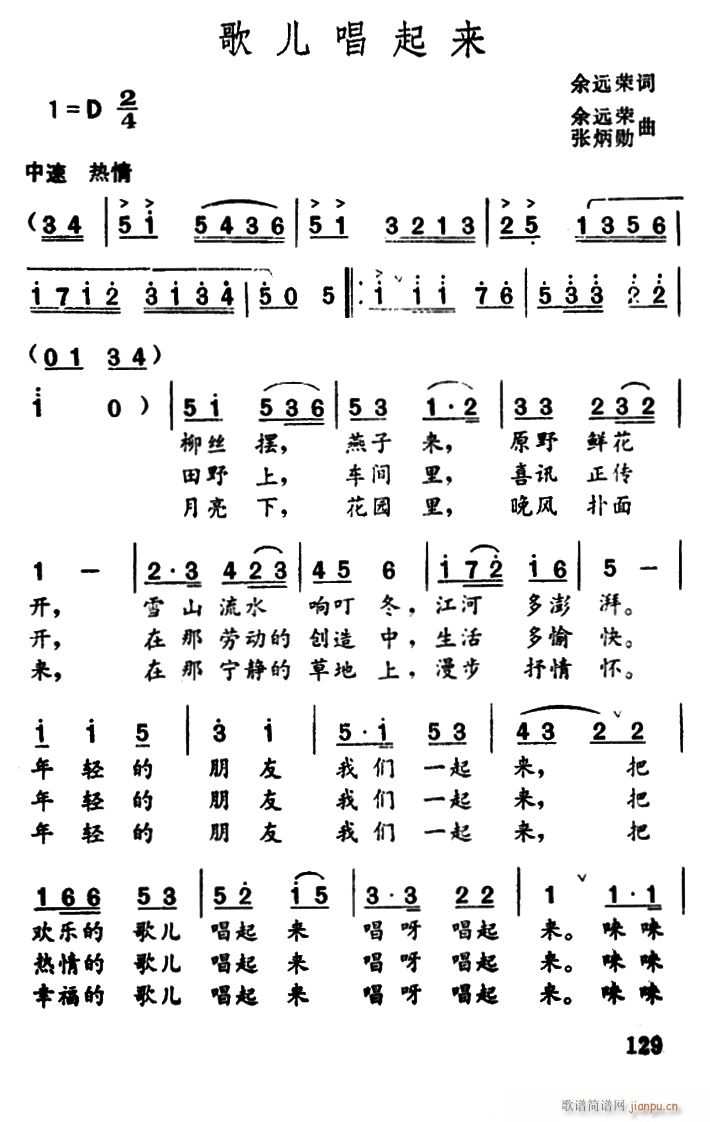 歌儿唱起来
余远荣词
1=D 2/4
余远荣
张炳勋 曲
中速 热情
(3 4 | 5 1 5 4 3 6 | 5 1 3 2 1 3 | 2 5 1 3 5 6 |
1 7 1 2 3 1 3 4 | 5 0 5 |: 1 1 1 7 6 | 5 3 3 2 2 |
(0 1 3 4)
1 0 ) | 5 1 5 3 6 | 5 3 1 · 2 | 3 3 2 3 2 |
柳丝摆, 燕子来, 原野鲜花
田野上, 车间里, 喜讯正传
月亮下, 花园里, 晚风扑面
1 - | 2 · 3 4 2 3 | 4 5 6 | 1 7 2 1 6 | 5 - |
开, 雪山流水 响叮冬, 江河多澎湃。
开, 在那劳动的创造中, 生活多愉快。
来, 在那宁静的草地上, 漫步抒情怀。
1 1 5 | 3 1 | 5 · 1 5 3 | 4 3 2 2 |
年轻的朋友我们一起来, 把
年轻的朋友我们一起来, 把
年轻的朋友我们一起来, 把
1 6 6 5 3 | 5 2 1 5 | 3 · 3 2 2 | 1 1 · 1 |
欢乐的歌儿唱起来唱呀唱起来。咪咪
热情的歌儿唱起来唱呀唱起来。咪咪
幸福的歌儿唱起来唱呀唱起来。咪咪
129
歌谱简谱网 jianpu.cn